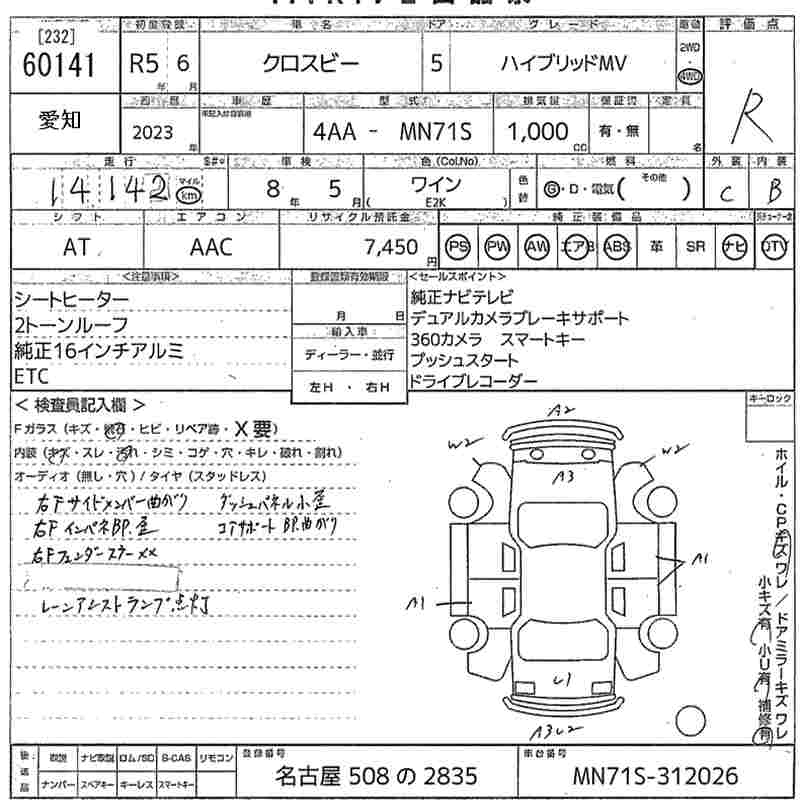 [232]
60141
初度登録 車名 ドア グレード 駆動 評価点
R5 年 6 月 クロスビー 5 ハイブリッドMV 2WD ・ 4WD R
愛知
西暦 車歴 型式 排気量 保証書 定員
2023 年 4AA - MN71S 1,000 CC 有・無 名
走行 車検 色(Col.No) 燃料 外装 内装
14142 マイル km 8 年 5 月 ( ワイン E2K ) 色替 G・D・電気( その他 ) C B
シフト エアコン リサイクル預託金 純正装備品
AT AAC 7,450 円 PS PW AW エアB ABS 革 SR ナビ DTV
<注意事項> 登録書類有効期限 <セールスポイント>
シートヒーター
2トーンルーフ
純正16インチアルミ
ETC
月 日
輸入車
ディーラー・並行
左H ・ 右H
純正ナビテレビ
デュアルカメラブレーキサポート
360カメラ スマートキー
プッシュスタート
ドライブレコーダー
< 検査員記入欄 > キーロック
Fガラス(キズ・ ・ヒビ・リペア跡・X要)
内装(キズ・スレ・汚れ・シミ・コゲ・穴・キレ・破れ・割れ)
オーディオ(無し・穴)/タイヤ(スタッドレス)
右Fサイドメンバー曲がり ダッシュパネル小歪
右FインパネBP.歪 コアサポートBP.曲がり
右Fフェンダーステー××
レーンアシストランプ点灯
A2
W2 W2
A3
A1
A1
U1
A3U2
ホイル・CPキズワレ/ドアミラーキズワレ
小キズ有 小U有 補修有
後送品 取説 ナビ取説 ロム/SD B-CAS リモコン
ナンバー スペアキー キーレス スマートキー
登録番号
名古屋 508 の 2835
車台番号
MN71S-312026